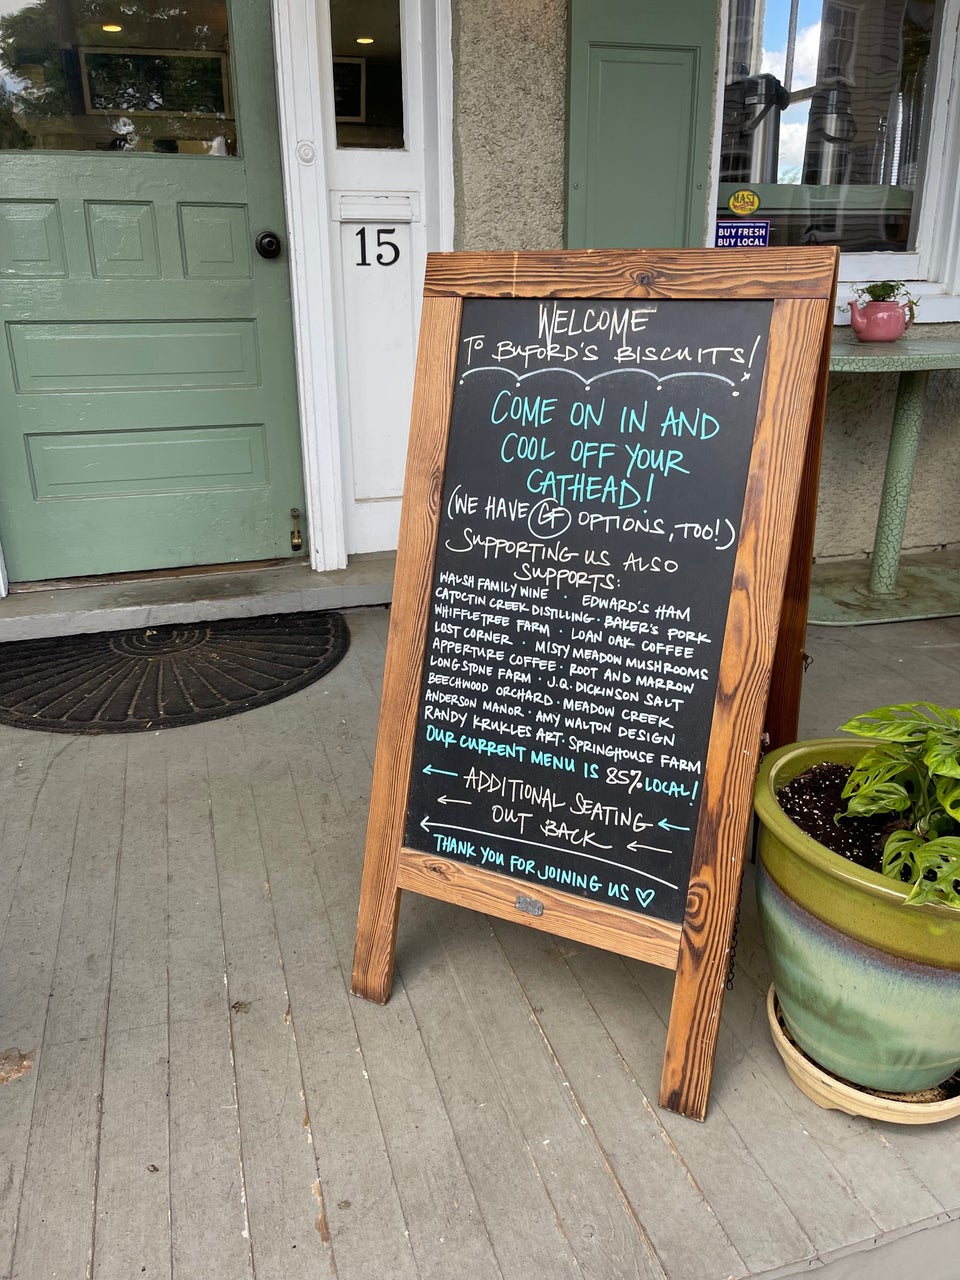 15
MASI
BUY FRESH
BUY LOCAL
WELCOME
TO BUFORD'S BISCUITS!
COME ON IN AND
COOL OFF YOUR
CATHEAD!
(WE HAVE GF OPTIONS, TOO!)
SUPPORTING US ALSO
SUPPORTS:
WALSH FAMILY WINE · EDWARD'S HAM
CATOCTIN CREEK DISTILLING · BAKER'S PORK
WHIFFLETREE FARM · LOAN OAK COFFEE
LOST CORNER · MISTY MEADOW MUSHROOMS
APPERTURE COFFEE · ROOT AND MARROW
LONGSTONE FARM · J.Q. DICKINSON SALT
BEECHWOOD ORCHARD · MEADOW CREEK
ANDERSON MANOR · AMY WALTON DESIGN
RANDY KRUKLES ART · SPRINGHOUSE FARM
OUR CURRENT MENU IS 85% LOCAL!
← ADDITIONAL SEATING ←
← OUT BACK ←
THANK YOU FOR JOINING US ♡